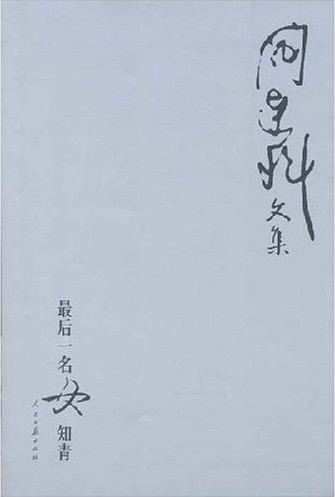 阎连科文集
最后一名女知青
人民日报出版社